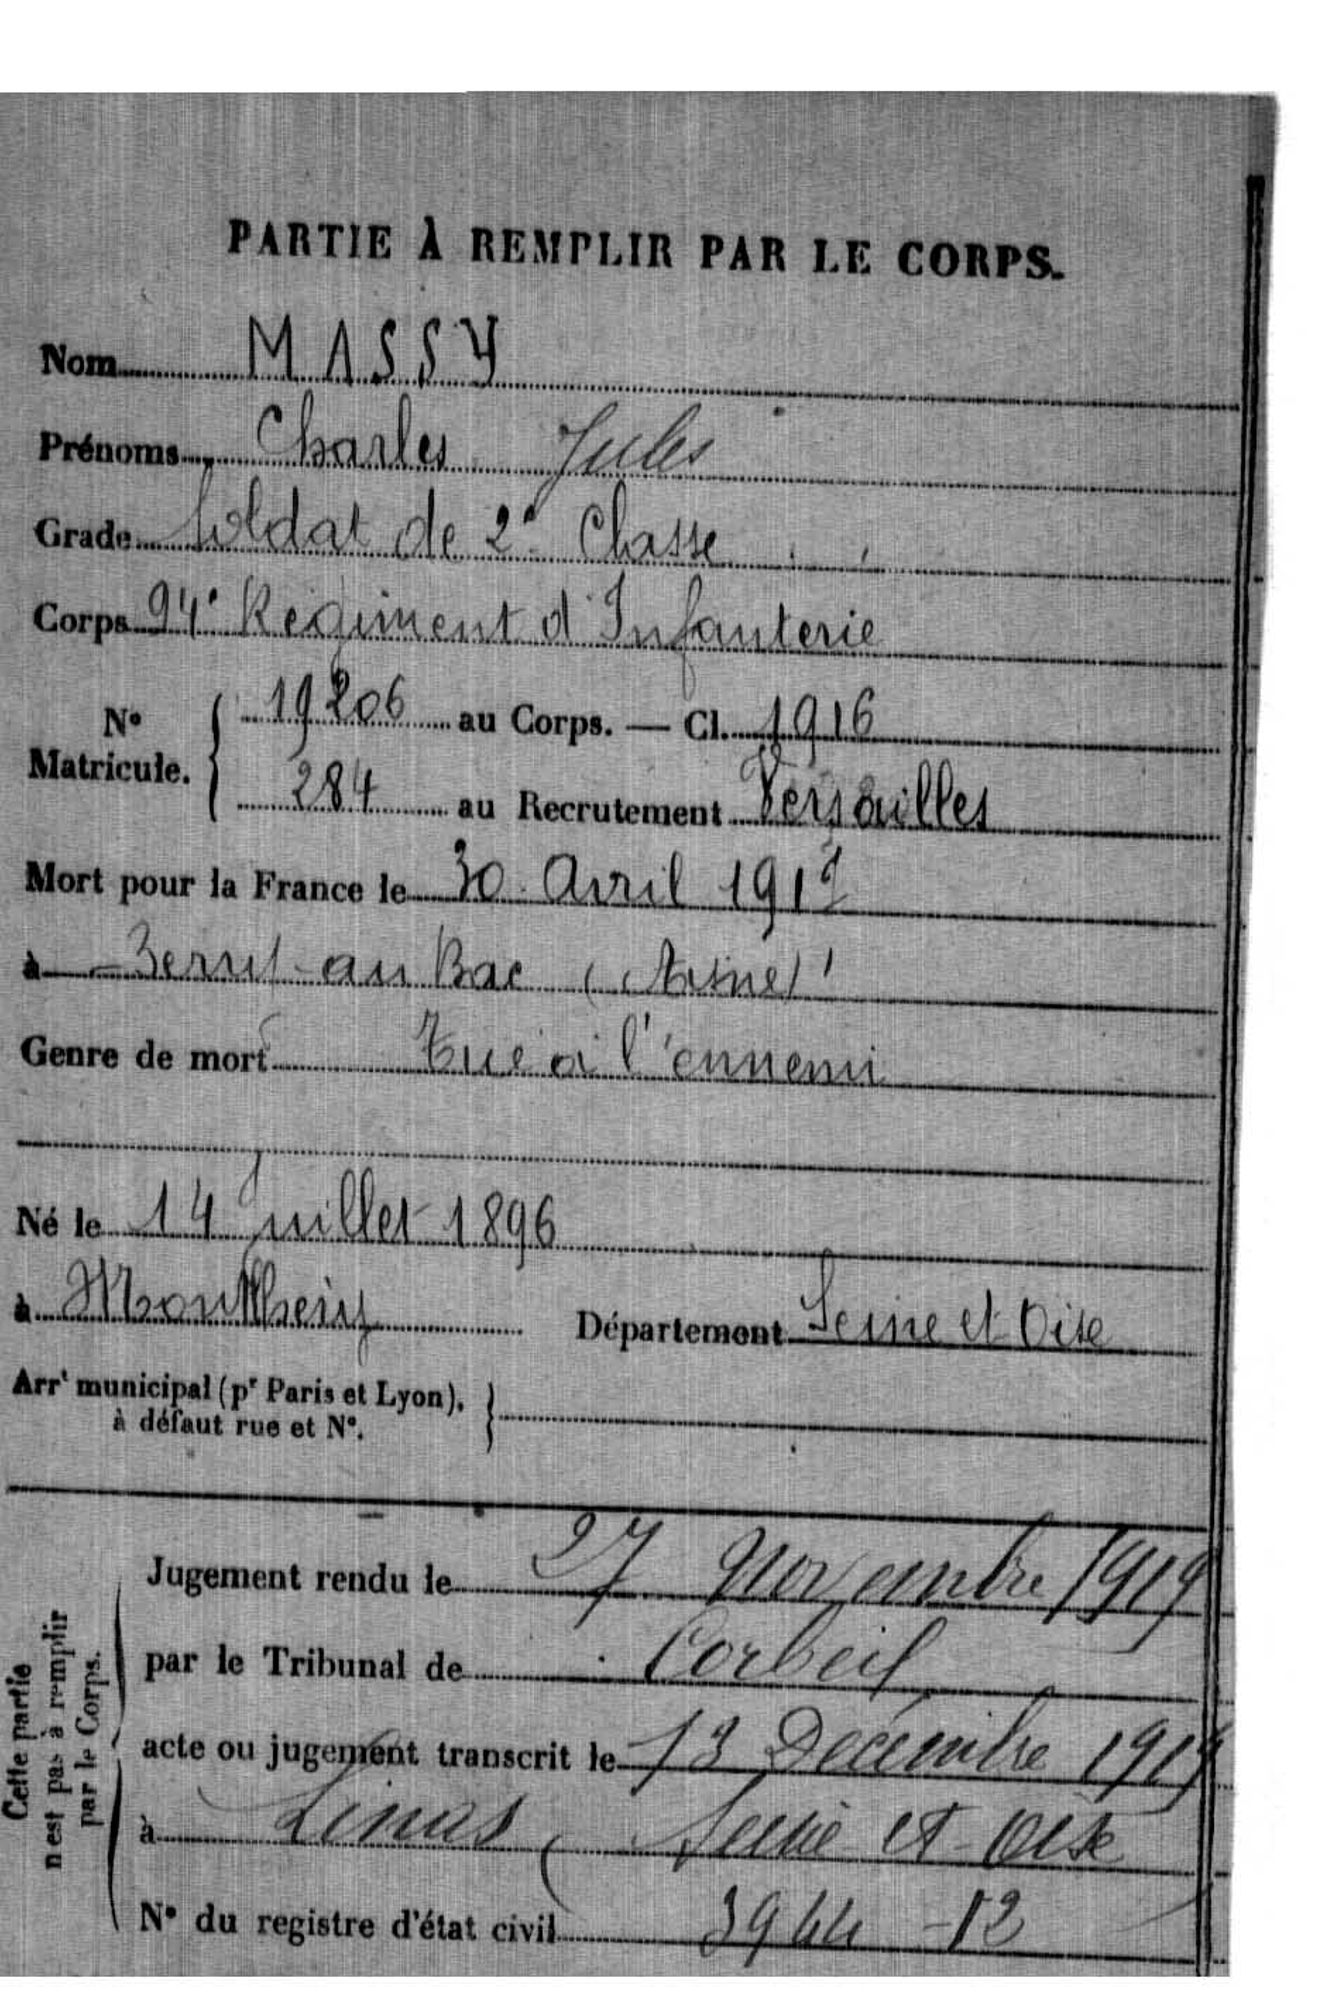 PARTIE À REMPLIR PAR LE CORPS.
Nom MASSY
Prénoms Charles Jules
Grade Soldat de 2e Classe
Corps 94e Régiment d'Infanterie
N° Matricule. 19206 au Corps. — Cl. 1916
284 au Recrutement Versailles
Mort pour la France le 30 Avril 1917
à Berry-au Bac (Aisne)
Genre de mort Tué à l'ennemi
Né le 14 Juillet 1896
à Montlhéry Département Seine et Oise
Arrt municipal (pr Paris et Lyon), à défaut rue et N°.
Cette partie n'est pas à remplir par le Corps.
Jugement rendu le 27 Novembre 1919
par le Tribunal de Corbeil
acte ou jugement transcrit le 13 Décembre 1919
à Linas Seine et Oise
N° du registre d'état civil 3944-12